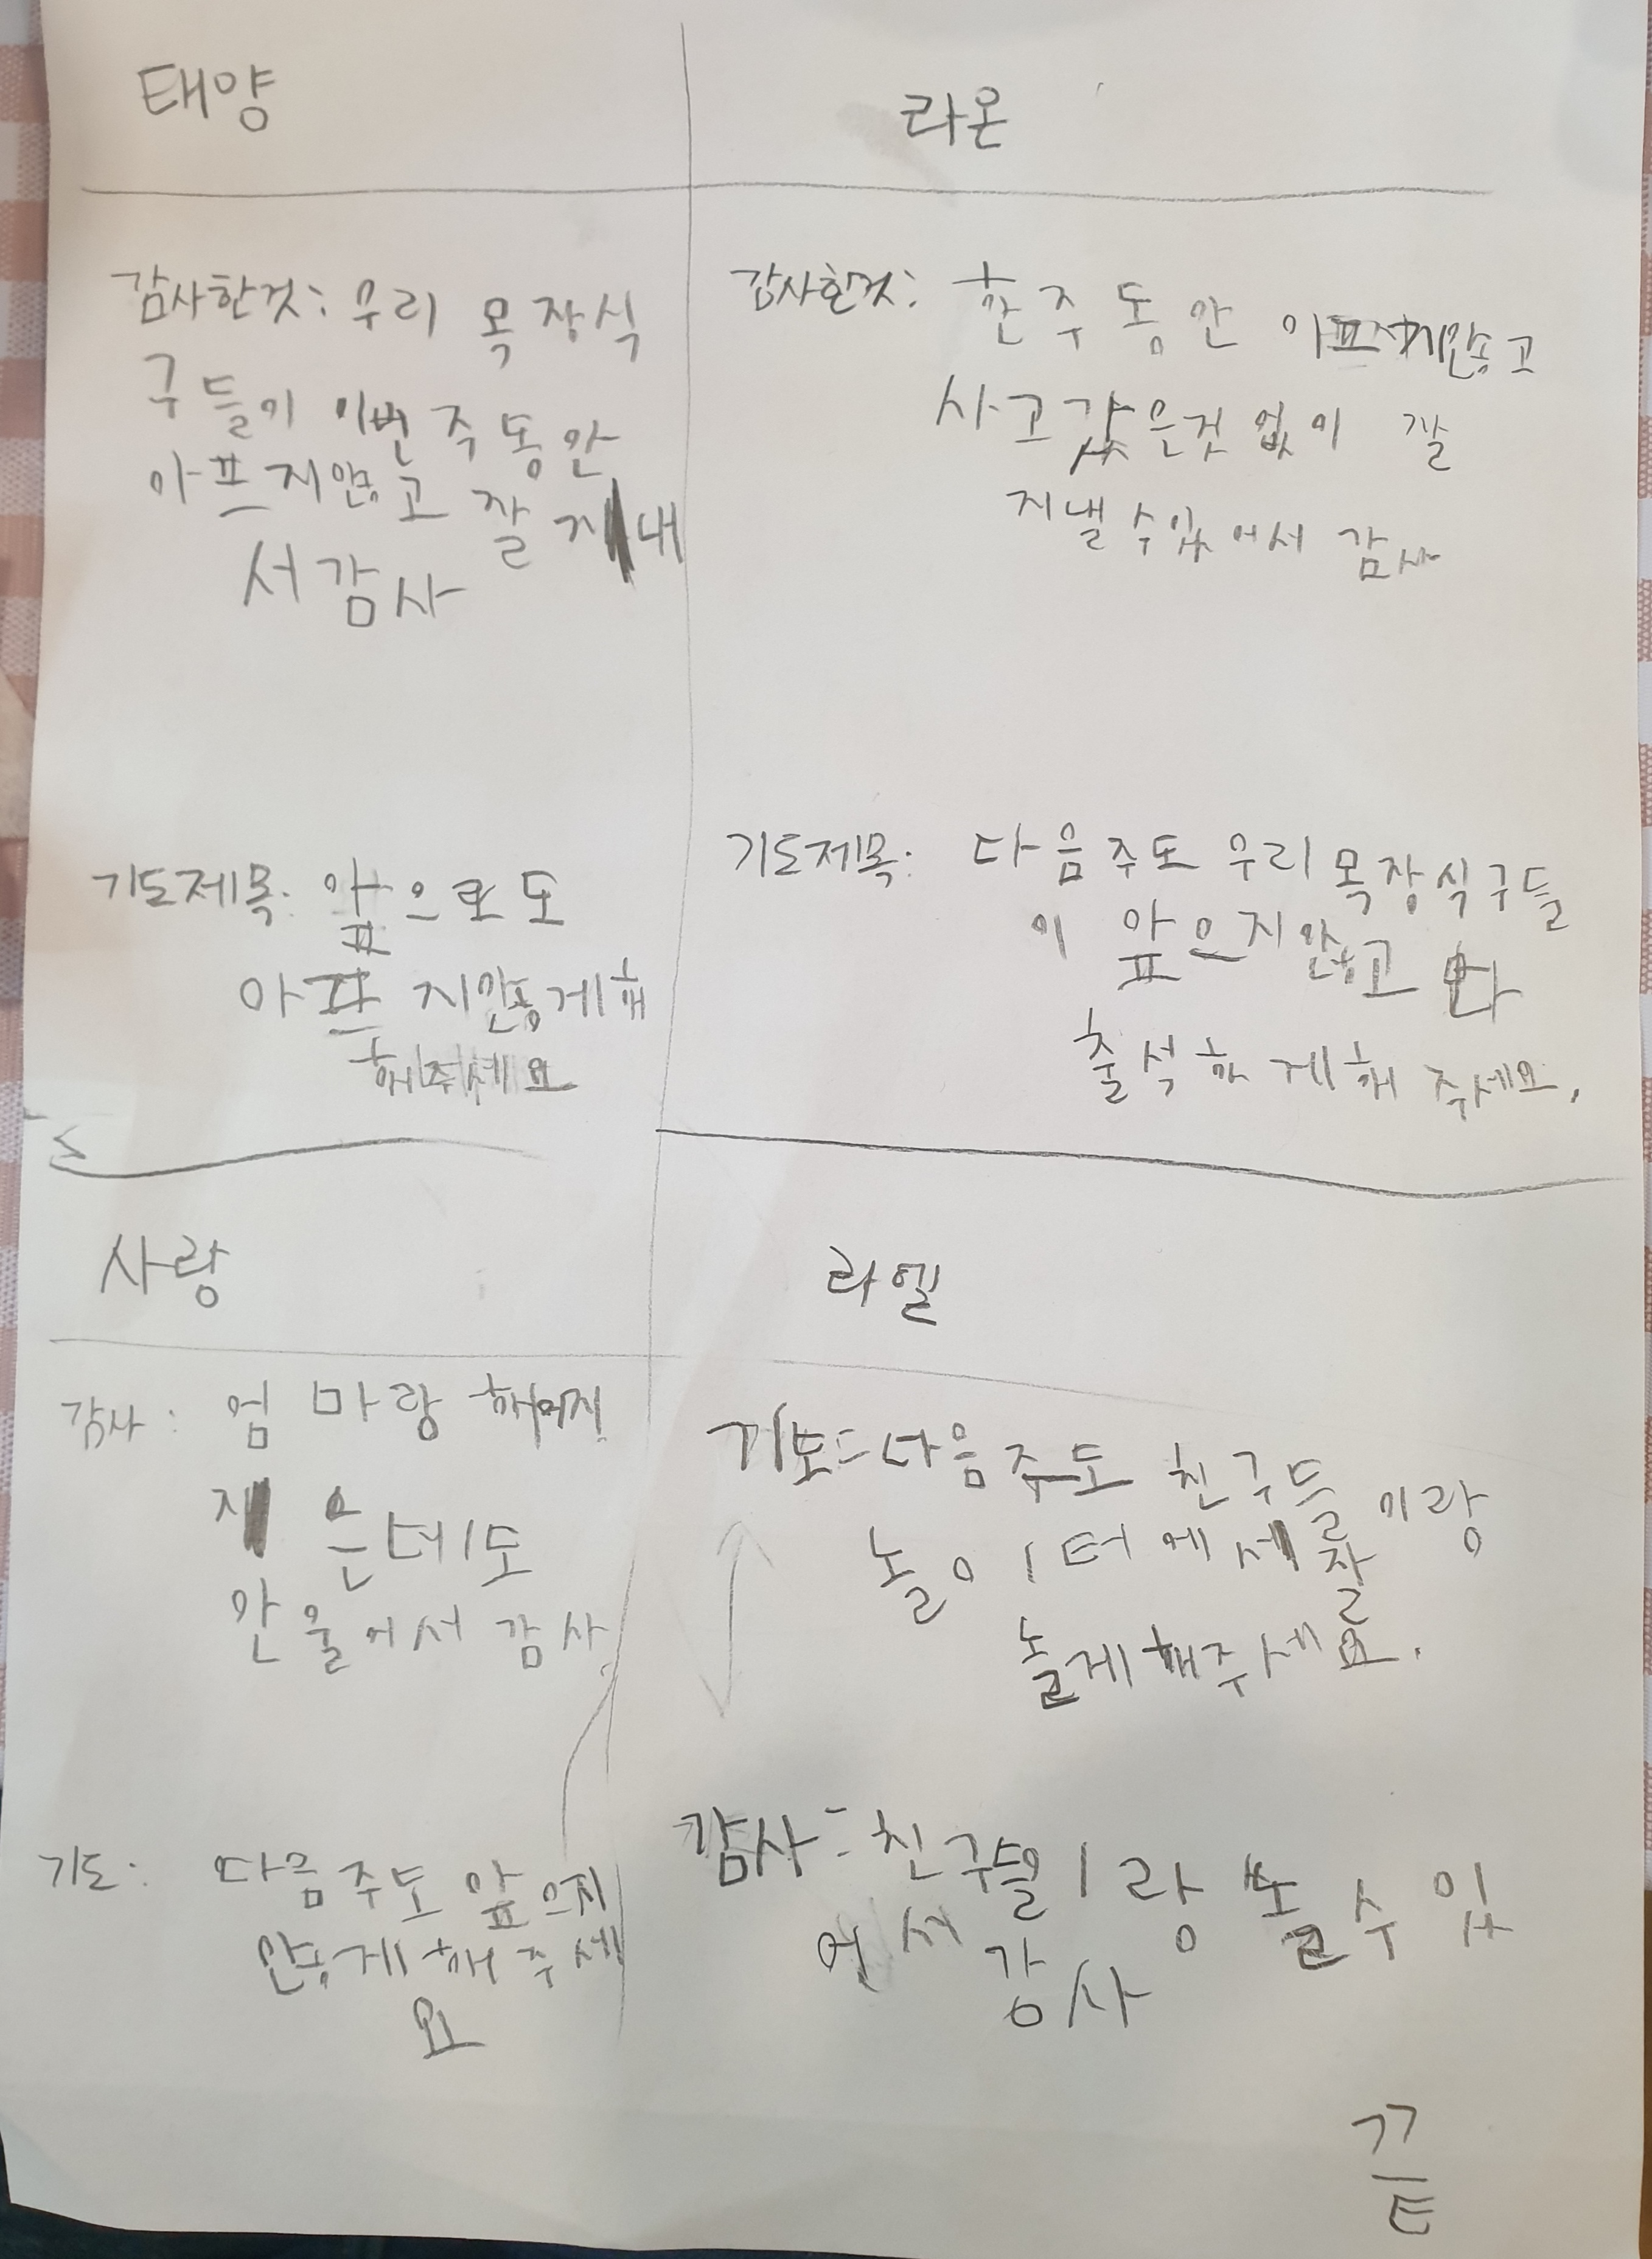 태양
감사한것: 우리 목장식
구들이 이번주동안
아프지않고 잘지내
서감사
기도제목: 앞으로도
아프지않게해
해주세요
라온
감사한것: 한주동안 아프지않고
사고같은것없이 잘
지낼수있어서 감사
기도제목: 다음주도 우리목장식구들
이 앞으지않고 다
출석하게해주세요.
사랑
감사: 엄마랑
은데도
안울어서 감사
기도: 다음주도 앞으지
않게해주세
요
라엘
기도: 다음주도 친구들이랑
놀이터에서 잘
놀게해주세요.
감사: 친구들이랑 놀수있
어서 감사
끝